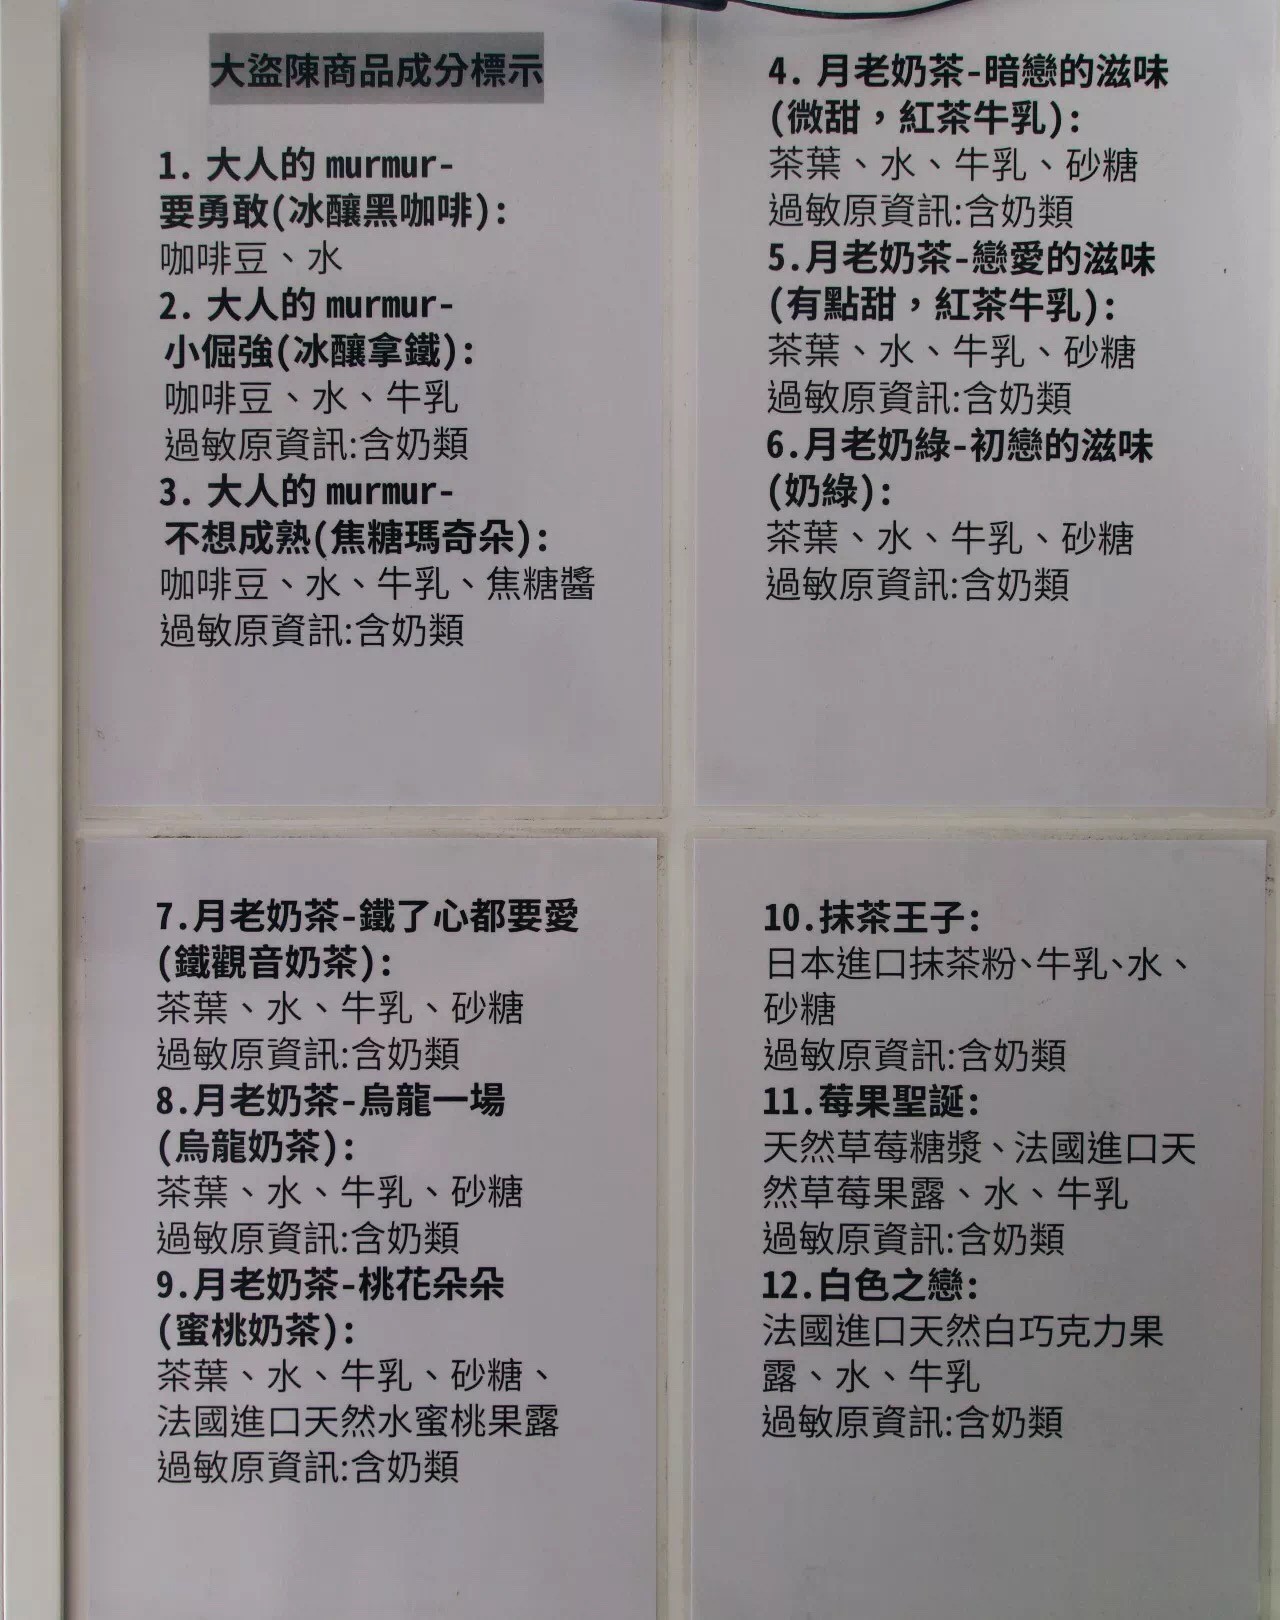 大盜陳商品成分標示
1. 大人的 murmur-
要勇敢(冰釀黑咖啡):
咖啡豆、水
2. 大人的 murmur-
小倔強(冰釀拿鐵):
咖啡豆、水、牛乳
過敏原資訊:含奶類
3. 大人的 murmur-
不想成熟(焦糖瑪奇朵):
咖啡豆、水、牛乳、焦糖醬
過敏原資訊:含奶類
4. 月老奶茶-暗戀的滋味
(微甜，紅茶牛乳):
茶葉、水、牛乳、砂糖
過敏原資訊:含奶類
5.月老奶茶-戀愛的滋味
(有點甜，紅茶牛乳):
茶葉、水、牛乳、砂糖
過敏原資訊:含奶類
6.月老奶綠-初戀的滋味
(奶綠):
茶葉、水、牛乳、砂糖
過敏原資訊:含奶類
7.月老奶茶-鐵了心都要愛
(鐵觀音奶茶):
茶葉、水、牛乳、砂糖
過敏原資訊:含奶類
8.月老奶茶-烏龍一場
(烏龍奶茶):
茶葉、水、牛乳、砂糖
過敏原資訊:含奶類
9.月老奶茶-桃花朵朵
(蜜桃奶茶):
茶葉、水、牛乳、砂糖、
法國進口天然水蜜桃果露
過敏原資訊:含奶類
10.抹茶王子:
日本進口抹茶粉、牛乳、水、
砂糖
過敏原資訊:含奶類
11.莓果聖誕:
天然草莓糖漿、法國進口天
然草莓果露、水、牛乳
過敏原資訊:含奶類
12.白色之戀:
法國進口天然白巧克力果
露、水、牛乳
過敏原資訊:含奶類